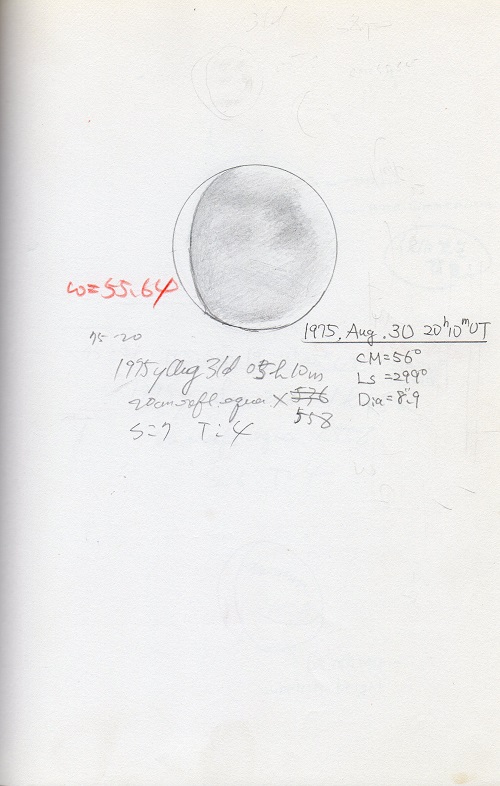 ω=55.64
1975, Aug. 30 20ʰ10ᵐUT
CM=56°
Ls=299°
Dia=8".9
75-20
1975y Aug 31d 05h 10m
20cm refl. equa. × 576
558
S=7 T:4